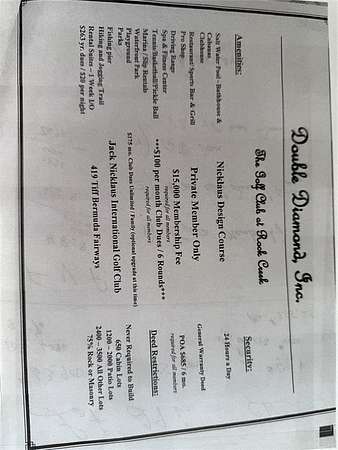 Double Diamond, Inc.
The Golf Club at Rock Creek
Amenities:
Salt Water Pool - Bathhouse &
Cabanas
Clubhouse
Restaurant/Sports Bar & Grill
Pro Shop
Driving Range
Spa & Fitness Center
Tennis/Basketball/Pickle Ball
Marina / Slip Rentals
Waterfront Park
Playground
Parks
Fishing pier
Hiking and Jogging Trail
Rental Suites – 1 Week I/O
$263 yr. dues / $20 per night
Nicklaus Design Course
Private Member Only
$15,000 Membership Fee
required for all members
***$100 per month Club Dues / 6 Rounds***
required for all members
$175 mo. Club Dues Unlimited / Family (optional upgrade at this time)
Jack Nicklaus International Golf Club
419 Tiff Bermuda Fairways
Security:
24 Hours a Day
General Warranty Deed
POA $685/6 mo.
required for all members
Deed Restrictions:
Never Required to Build
650 Cabin Lots
1200 – 2000 Patio Lots
2400 – 3500 All Other Lots
75% Rock or Masonry